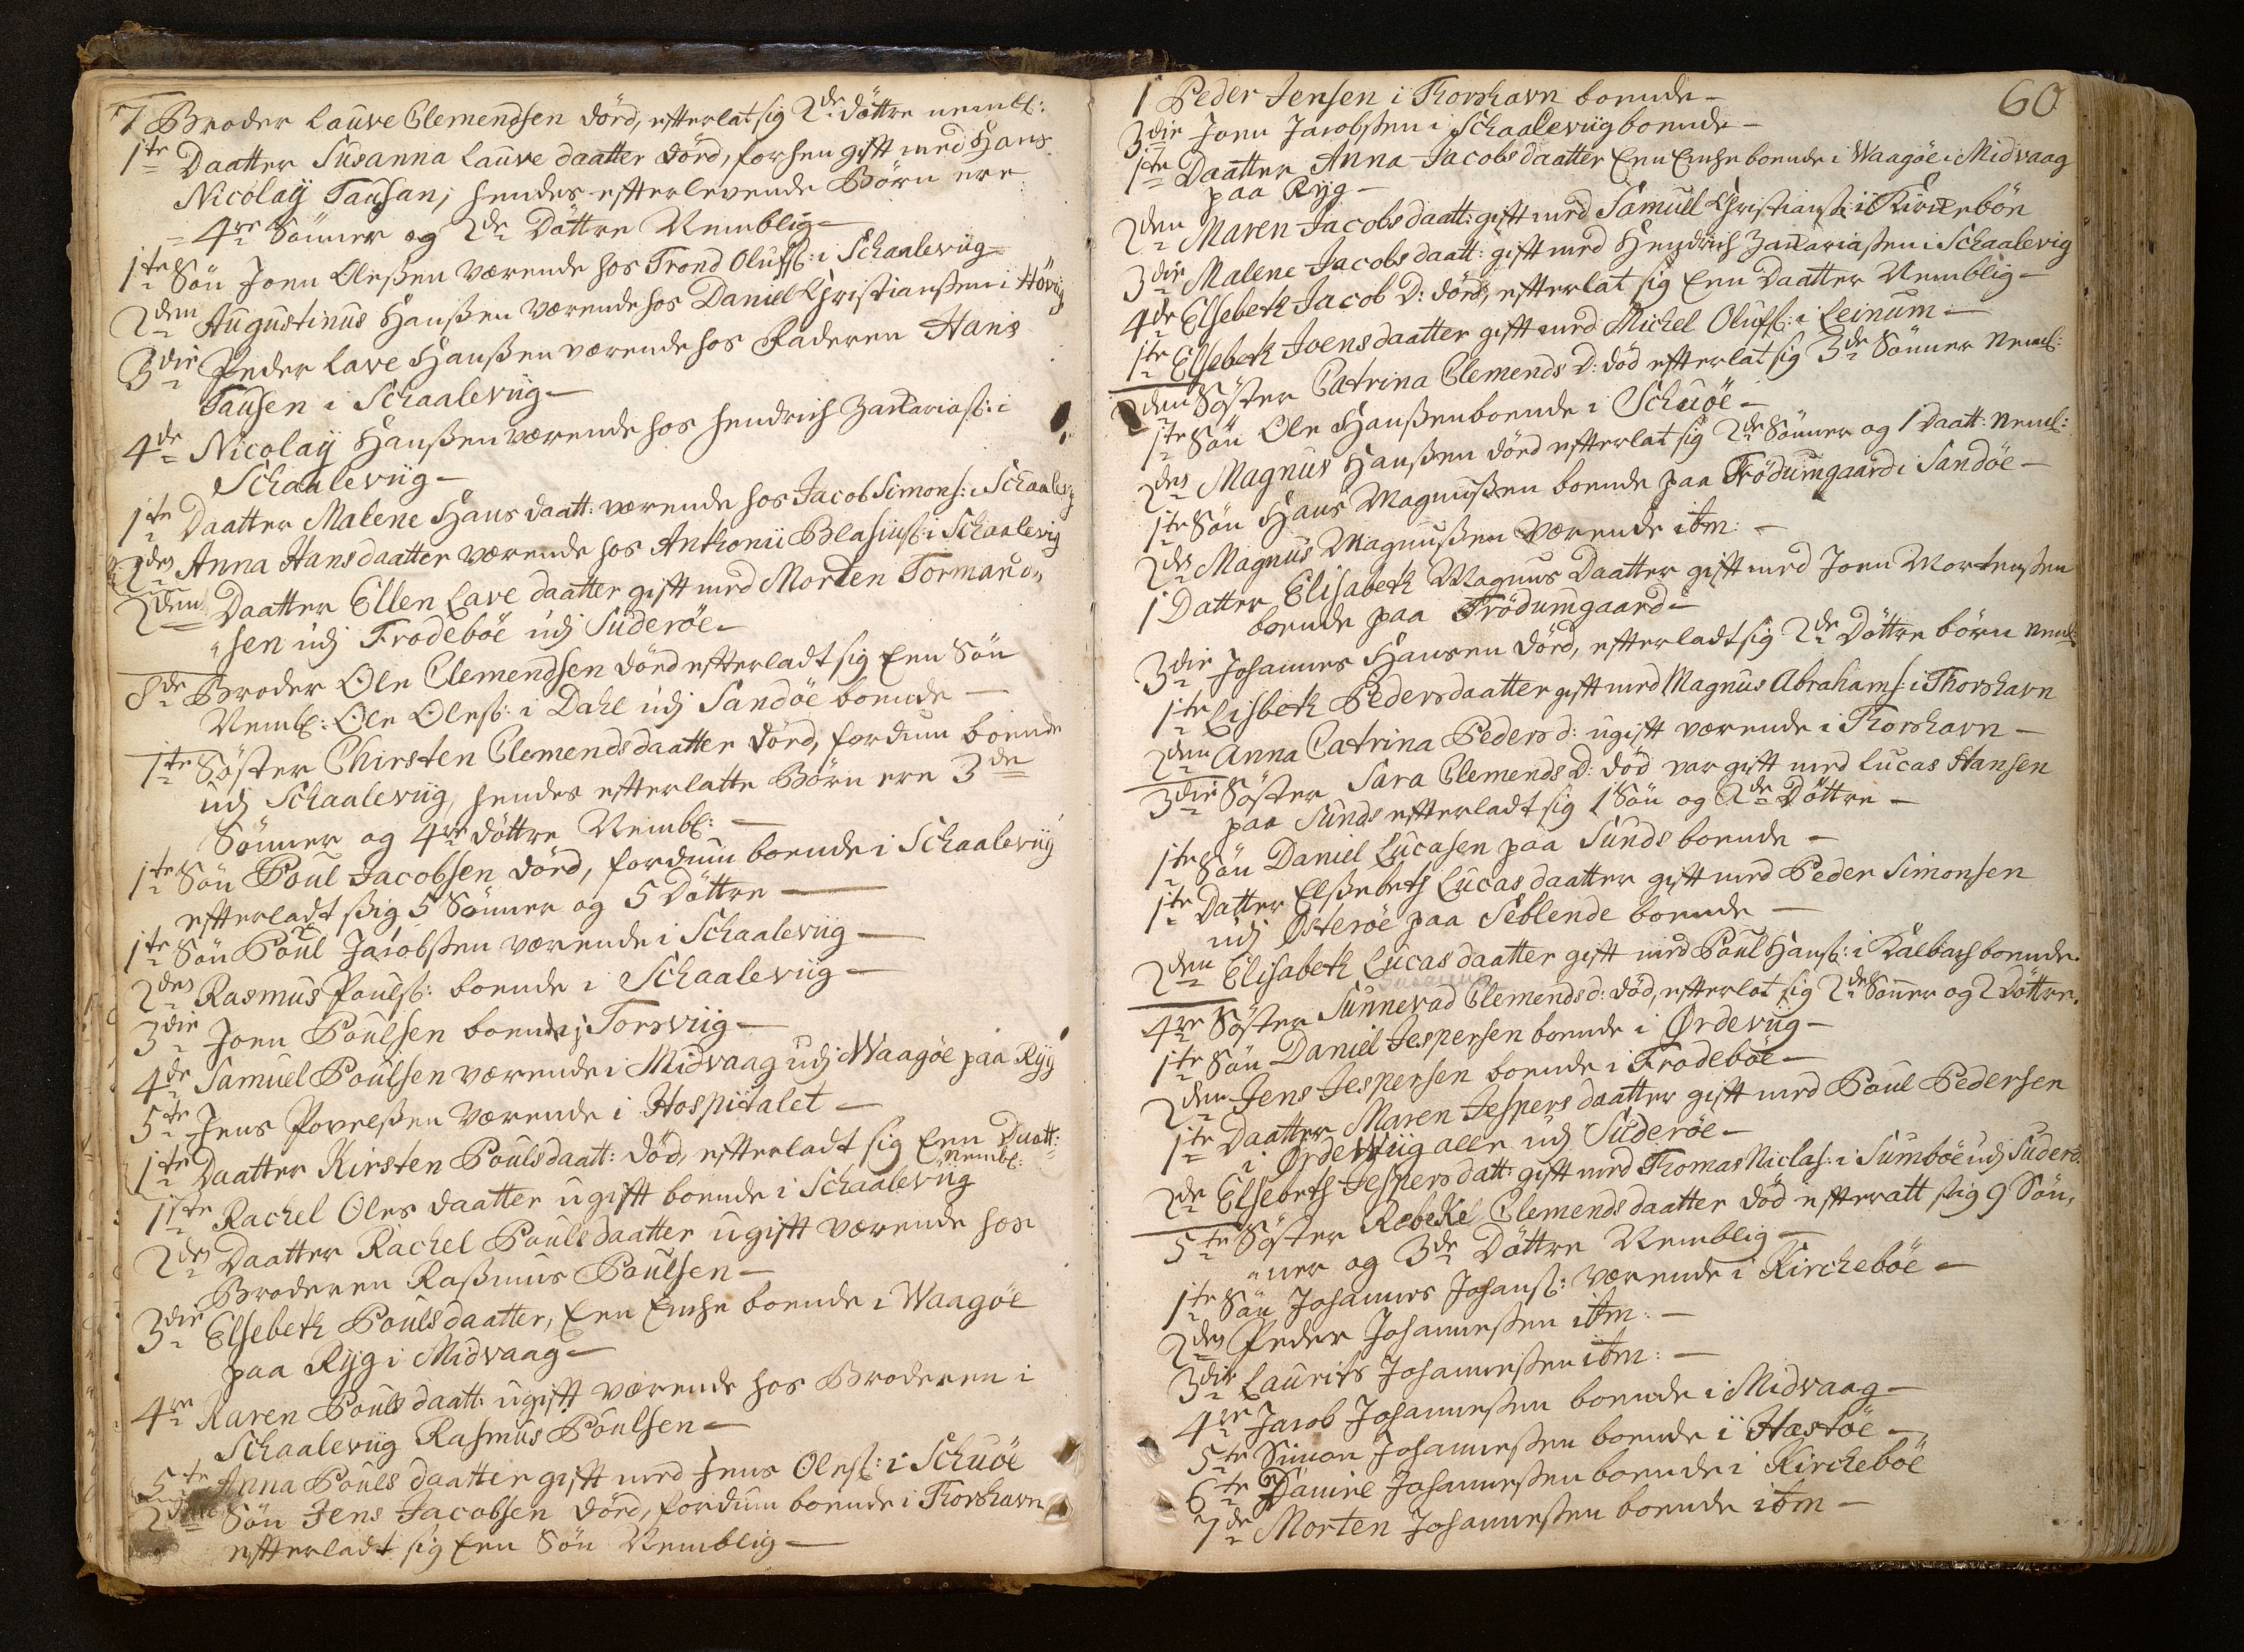 7 Broder Lauve Clemendsen dörd, efterlat sig 2de döttre nembl:
1te Daatter Susanna Lauve daatter dörd, forhen gift med Hans
Nicolaÿ Tausan, hendes efterlevende Börn ere
4re Sönner og 2de Döttre Nemblig
1te Sön Joen Oleßen værende hos Trond Olufs: i Schaaleviig
2den Augustinus Hanßen værende hos Daniel Christianßen i Höviig
3die Peder Lave Hanßen værende hos Faderen Hans
Tausen i Schaaleviig
4de Nicolaÿ Hanßen værende hos Hendrich Zachariaß: i
Schaaleviig
1te Daatter Malene Hans daatt: værende hos Jacob Simons: i Schaalevig
2den Anna Hansdaatter værende hos Anthonii Blasiuß: i Schaalevig
2den Daatter Ellen Lave daatter gift med Morten Tormand-
sen udj Frodeböe udj Süderöe
8de Broder Ole Clemendsen dörd efterladt sig Een Sön
Nembl: Ole Oleß: i Dahl udj Sandöe boende
1te Söster Chirsten Clemendsdaatter dörd, fordum boende
udj Schaaleviig, hendes efterlatte Börn ere 3de
Sönner og 4re döttre Nembl:
1te Sön Poul Jacobsen dörd, fordum boende i Schaaleviig
efterladt sig 5 Sönner og 5 Döttre
1te Sön Poul Jacobßen værende i Schaaleviig
2den Rasmus Pouls: boende i Schaaleviig
3die Joen Poulsen boende j Torsviig
4de Samuel Poulsen værende i Midvaag udj Waagöe paa Ryg
5te Jens Povelßen værende i Hospitalet
1te Daatter Kirsten Poulsdaatt: död, efterladt sig Een Daatt:
Nembl:
1ste Rachel Oles daatter ugift boende i Schaaleviig
2den Daatter Rachel Pouls daatter ugift værende hos
Broderen Raßmus Poulsen
3die Elsebeth Pouls daatter, Een Enche boende i Waagöe
paa Ryg i Midvaag
4re Karen Pouls daatt: ugift værende hos Broderen i
Schaaleviig Rasmus Poulsen
5te Anna Pouls daatter gift med Jens Oles: i Schuöe
2den Sön Jens Jacobsen dörd, fordum boende i Thorshavn
efterladt sig Een Sön Nemblig
60
1 Peder Jensen i Thorshavn boende
3die Joen Jacobßen i Schaaleviig boende
1ste Daatter Anna Jacobs daatter Een Enche boende i Waagöe i Midvaag
paa Ryg
2den Maren Jacobs daatt: gift med Samuel Christianß: i Kirkebön
3die Malene Jacobs daatt: gift med Hendrich Zachariaßen i Schaalevig
4de Elsebeth Jacob D: dörd, efterlat sig Een Daatter Nemblig
1te Elsebeth Joensdaatter gift med Michel Olufs: i Leinum
2den Söster Catrina Clemends D: död efterlat sig 3de Sönner Nembl:
1te Sön Ole Hanßen boende i Schuöe
2den Magnus Hanßen dörd efterlat sig 2de Sönner og 1 Daatt: Nembl:
1te Sön Hans Magnußen boende paa Trödumgaard i Sandöe
2den Magnus Magnußen værende ibm:
1 Datter Elisabeth Magnus Daatter gift med Joen Mortenßen
boende paa Trödumgaard
3die Johannes Hansen dörd, efterladt sig 2de Döttre börn Nembl:
1te Lisbeth Pedersdaatter gift med Magnus Abrahams: i Thorshavn
2den Anna Catrina Peders d: ugift værende i Thorshavn
3die Söster Sara Clemends D: död var gift med Lucas Hansen
paa Sunds efterladt sig 1 Sön og 2de Döttre
1te Sön Daniel Lucasen paa Sunds boende
1te Datter Elßebeth Lucas daatter gift med Peder Simonsen
udj Österöe paa Seblende boende
2den Elisabeth Lucas daatter gift med Poul Hanß: i Kalbach boende.
4re Söster Sunnevad Clemends d: död, efterlot sig 2de Sönner og 2 Döttre.
1te Sön Daniel Jespersen boende i Ørdeviig
2den Jens Jespersen boende i Frodeböe
1te Daatter Maren Jespers daatter gift med Poul Pedersen
i Ørdewiig alle udj Süderöe
2de Elsebeth Jespers datt: gift med Thomas Niclas: i Sumböe udj Suderö.
5te Söster Rebekel Clemends daatter död efteratt sig 9 Sön-
ner og 3de Döttre Nemblig
1te Sön Johannes Johanß: værende i Kirckeböe
2den Peder Johannesßen ibm:
3die Laurits Johannesßen ibm:
4re Jacob Johannesßen boende i Midvaag
5te Simon Johannesßen boende i Hæstöe
6te Daniel Johannesßen boende i Kirckeböe
7de Morten Johannesßen boende ibm